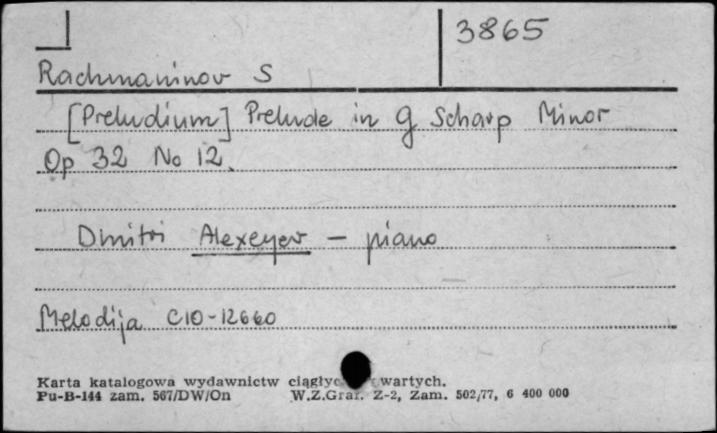 3865
Rachmaninov S
[Preludium] Prelude in g Scharp Minor
Op 32 No 12.
Dmitri Alexeyev - piano
Melodija C10-12660
Karta katalogowa wydawnictw wartych.
Pu-B-144 zam. 567/DW/On W.Z.Graf. Z-2, Zam. 502/77, 6 400 000